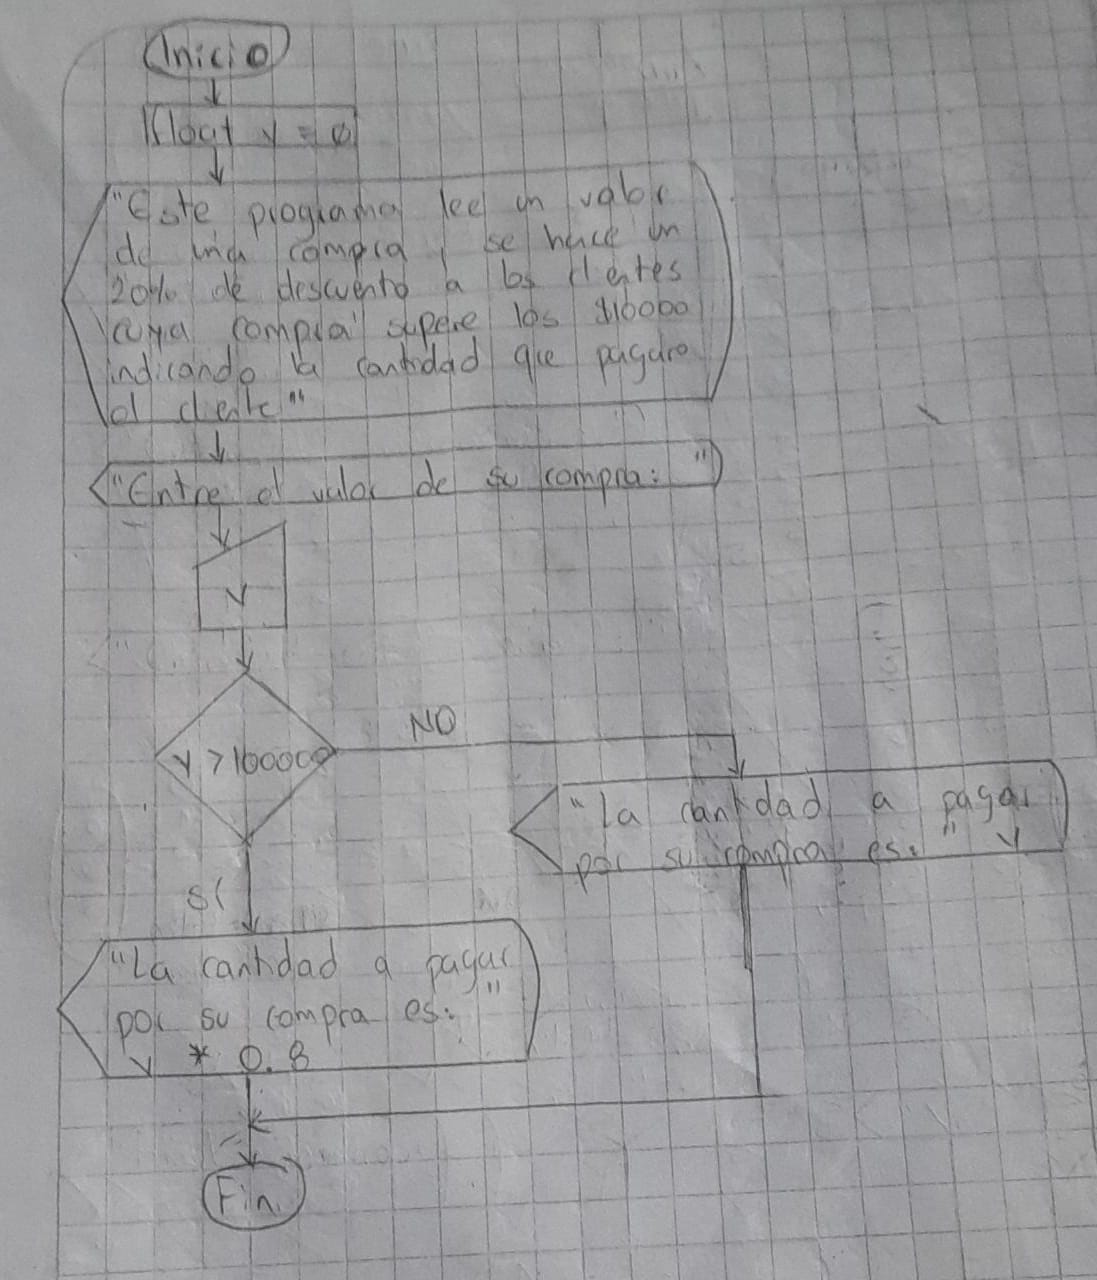 Inicio
float v = 0
"Este programa lee un valor
de una compra, se hace un
20% de descuento a los clientes
cuya compra supere los $10000
indicando la cantidad que pagara
el cliente"
"Entre el valor de su compra: "
v
v > 10000
NO
"La cantidad a pagar
por su compra es: " v
SI
"La cantidad a pagar
por su compra es: "
v * 0.8
Fin